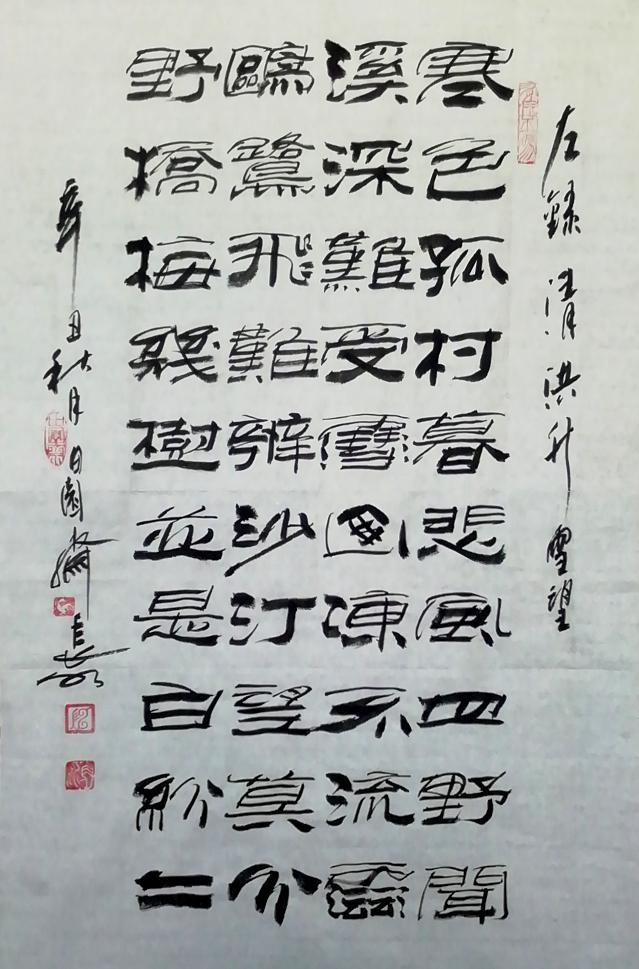 左錄清洪升雪望
寒色孤村暮悲風四野聞
溪深難受雪山凍不流雲
鷗鷺飛難辨沙汀望莫分
野橋梅幾樹並是白紛二
辛丑秋月日園